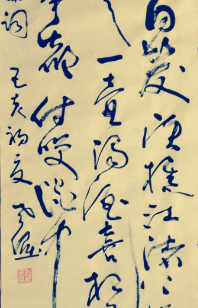 白发渔樵江渚上
一壶浊酒喜相
事都付笑谈中
词 己亥初夏